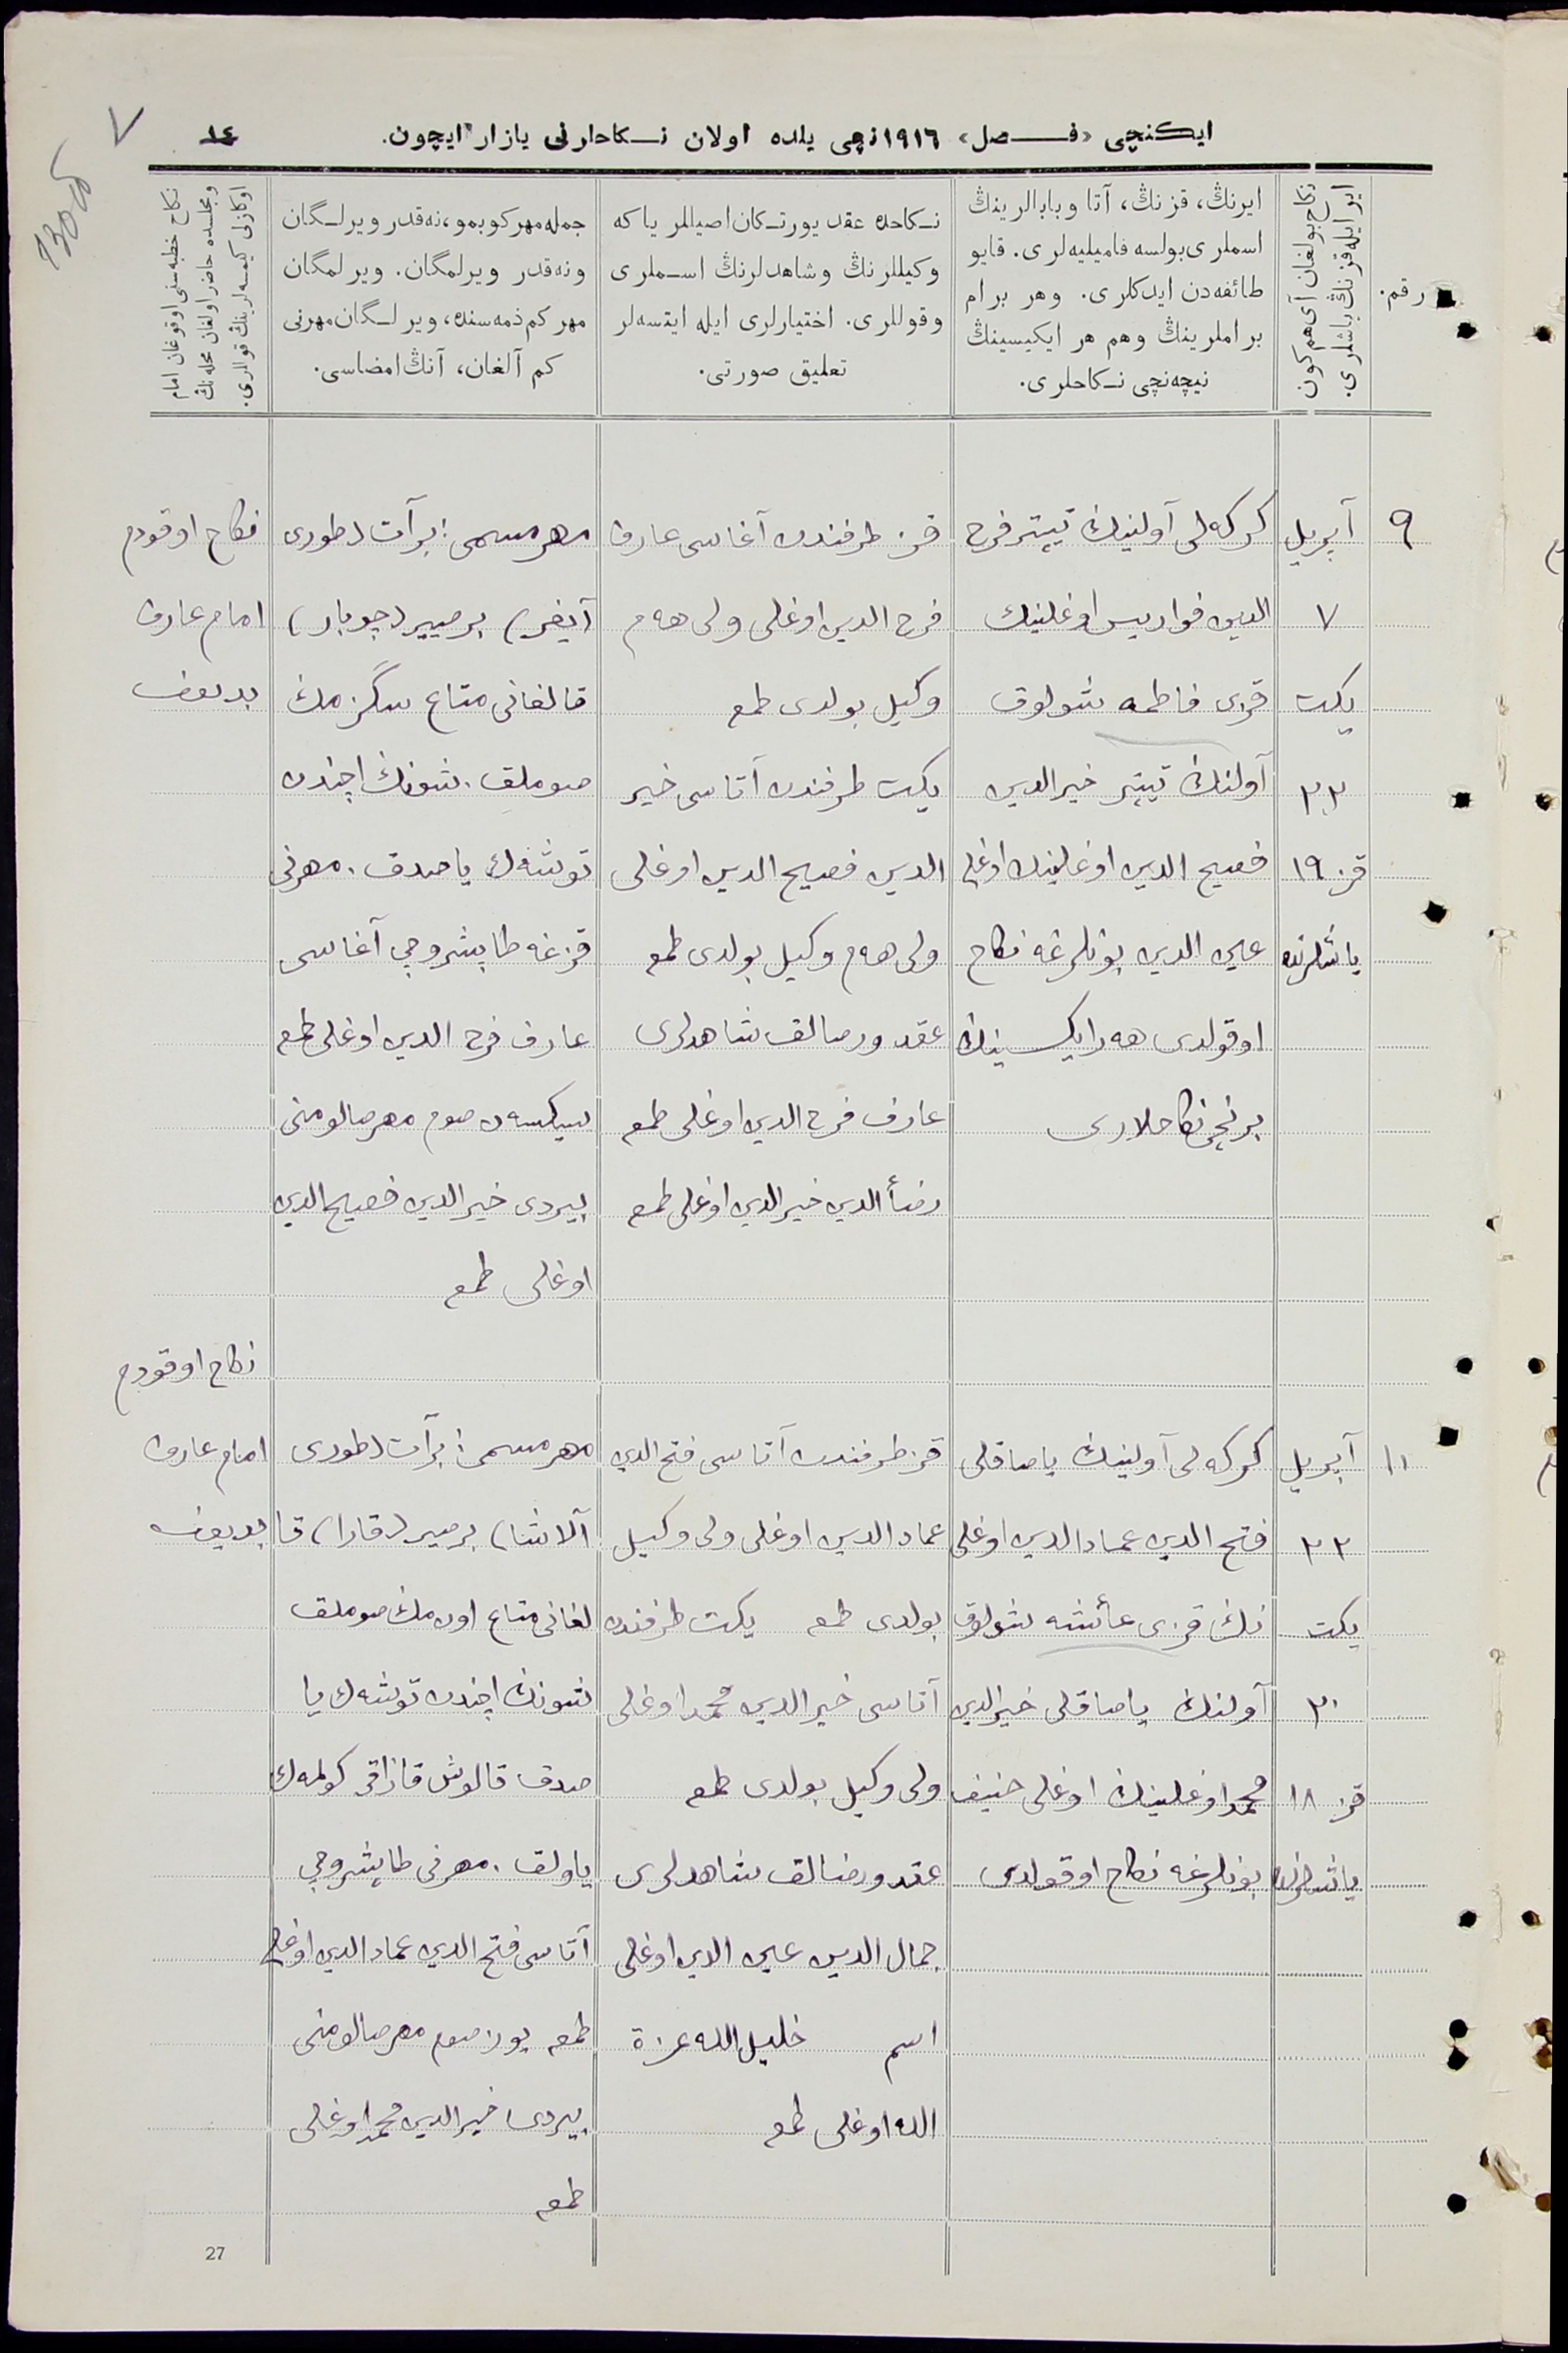 ایکنچی «فـــصل» ١٩١٦نچی یلده اولان نـکاحلرنی یازار ایچون.
١٤
رقم.
نکاح بولغان آی هم کون
ایر ایله قزنڭ باشلری.
ایرنڭ، قزنڭ، آتا وبابالرینڭ
اسملری بولسه فامیلیه‌لری. قایو
طائفه‌دن ایدکلری. وهر برام
براملرینڭ وهم هر ایکیسینڭ
نیچه‌نچی نـکاحلری.
نـکاحده عقد یورتـکان اصیاللر یاکه
وکیللرنڭ وشاهدلرنڭ اسـملری
وقوللری. اختیارلری ایله ایتسه‌لر
تعلیق صورتی.
جمله مهر کوبمو، نه‌قدر ویرلـگان
ونه‌قدر ویرلمگان. ویرلمگان
مهر کم ذمه‌سنده، ویرلـگان مهرنی
کم آلغان، آنڭ امضاسی.
نکاح خطبه‌سنی اوقوغان امام
ومجلسده حاضر اولغان محله‌نڭ
اوکازلی کیمسه‌لرینڭ قوللری.
٩
آپریل
٧
یکت
٢٣
قز ١٩
یاشلرنده
کرکه‌لی آولینڭ تیپتر فرح
الدین فواریس اوغلینڭ
قزی فاطمه شولوق
آولنڭ تیپتر خیرالدین
فصیح الدین اوغلینڭ اوغلی
علی الدین بونلرغه نکاح
اوقولدی هه‌ر ایکسینڭ
برنچی نکاحلاری
قز طرفندن آغاسی عارف
فرح الدین اوغلی ولی هه‌م
وکیل بولدی طمع
یکت طرفندن آتاسی خیر
الدین فصیح الدین اوغلی
ولی هه‌م وکیل بولدی طمع
عقد ورضالق شاهدلری
عارف فرح الدین اوغلی طمع
رضأالدین خیرالدین اوغلی طمع
مهر مسمی: برآت (طوری
آیغر) برصییر (چوبار)
قالغانی متاع سگز مڭ
صوملق. شونڭ اچندن
توشه‌ك یاصدق. مهرنی
قزغه طاپشروچی آغاسی
عارف فرح الدین اوغلی طمع
سیکسه‌ن صوم مهر صالومنی
بیردی خیرالدین فصیح الدین
اوغلی طمع
نکاح اوقودم
امام عارف
بدیعف
١١
آپریل
٢٣
یکت
٢٠
قز ١٨
یاشلرنده
کرکه‌لی آولینڭ یاصاقلی
فتح الدین عمادالدین اوغلی
نڭ قزی عائشه شولوق
آولنڭ یاصاقلی خیرالدین
محمد اوغلینڭ اوغلی حنیف
بونلرغه نکاح اوقولدی
قز طرفندن آتاسی فتح الدین
عماد الدین اوغلی ولی وکیل
بولدی طمع یکت طرفندن
آتاسی خیرالدین محمد اوغلی
ولی وکیل بولدی طمع
عقد ورضالق شاهدلری
جمال الدین علی الدین اوغلی
اسم خلیل الله عزة
الله اوغلی طمع
مهر مسمی: برآت (طوری
آلاشا) برصییر (قارا) قا
لغانی متاع اون مڭ صوملق
شونڭ اچندن توشه‌ك یا
صدق قالوش قازاقی کولمه‌ك
یاولق. مهرنی طاپشروچی
آتاسی فتح الدین عماد الدین اوغلی
طمع یوز صوم مهر صالومنی
بیردی خیرالدین محمد اوغلی
طمع
نکاح اوقودم
امام عارف
بدیعف
27